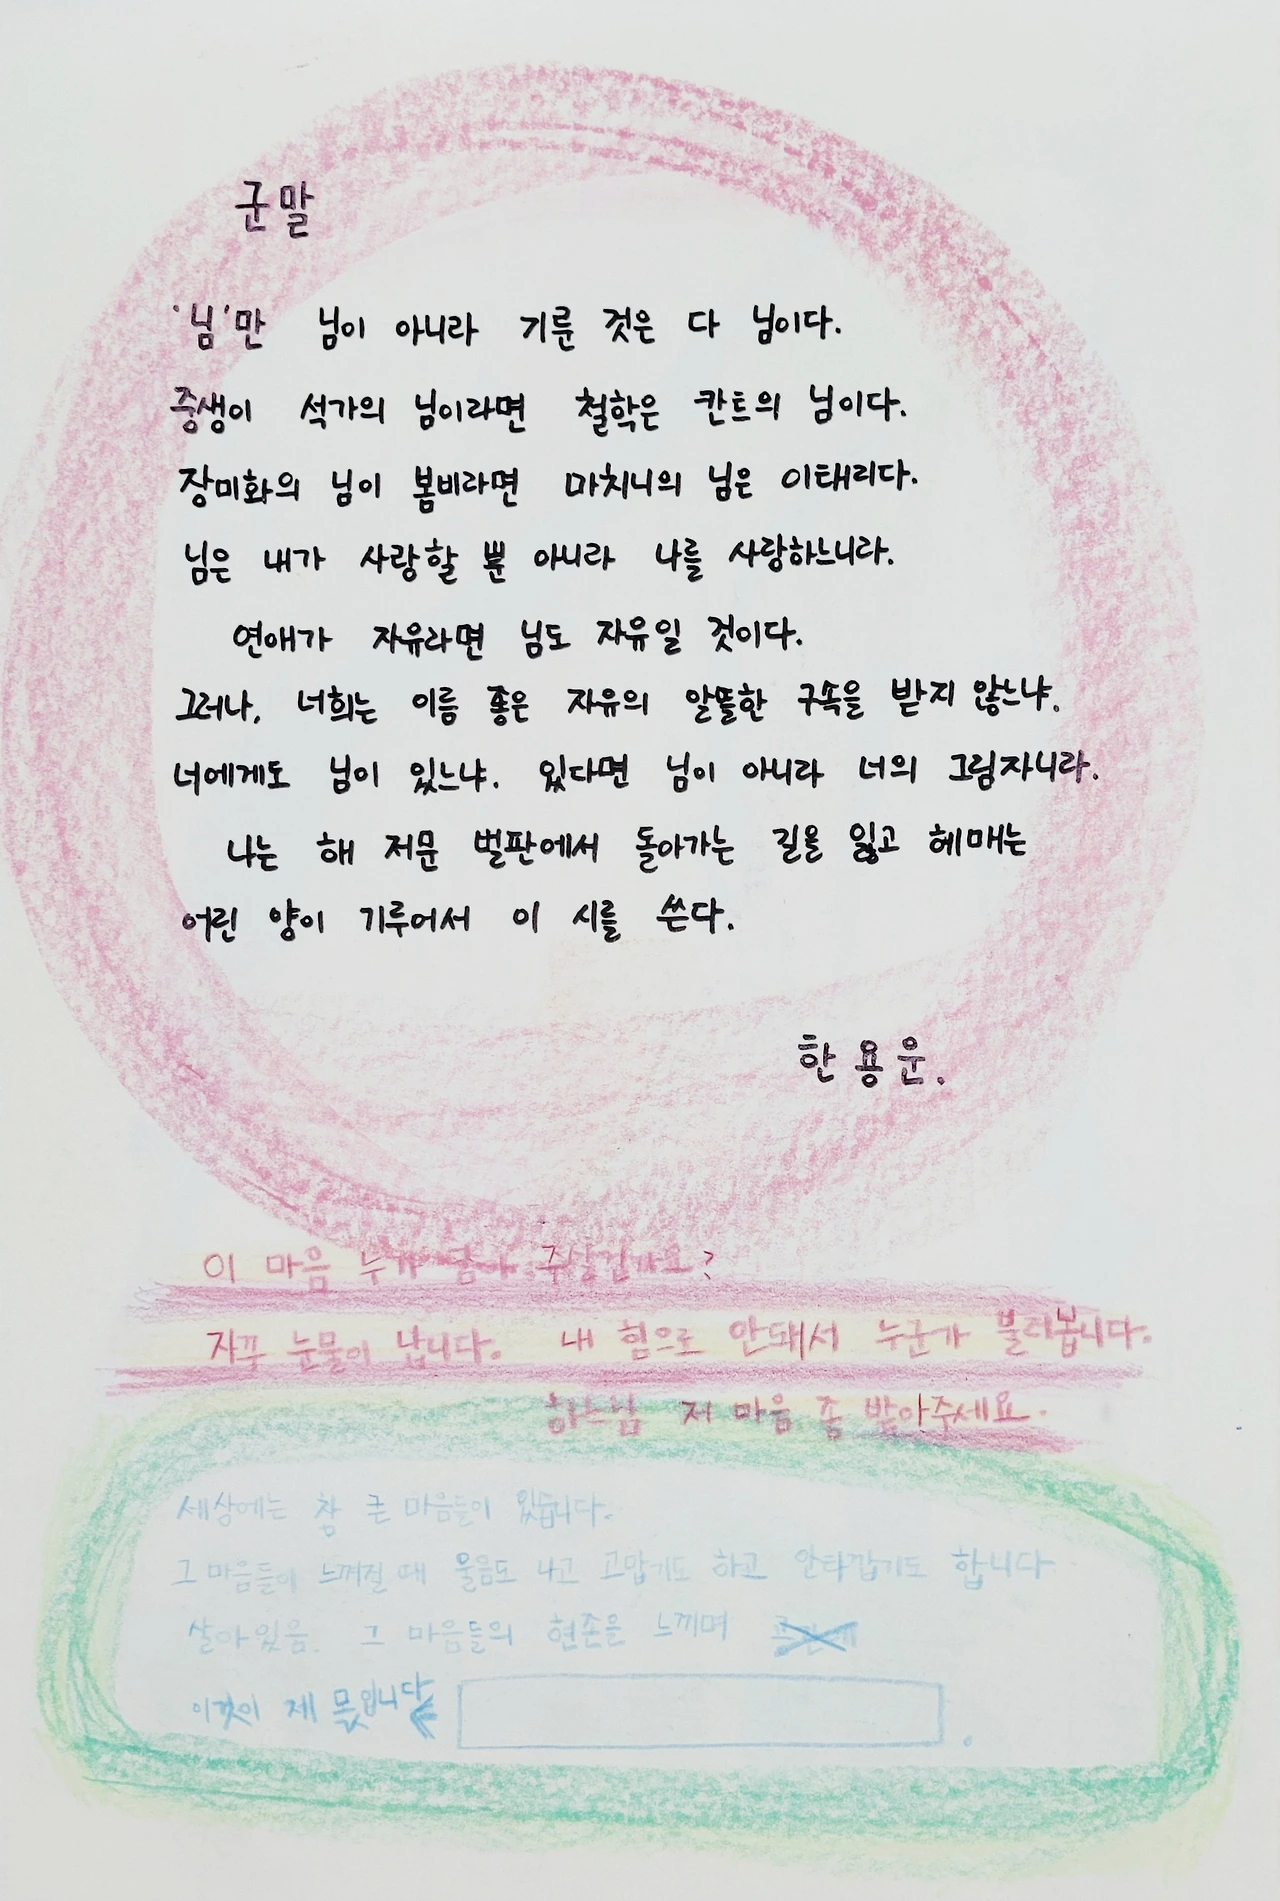 군말
'님'만 님이 아니라 기룬 것은 다 님이다.
중생이 석가의 님이라면 철학은 칸트의 님이다.
장미화의 님이 봄비라면 마치니의 님은 이태리다.
님은 내가 사랑할 뿐 아니라 나를 사랑하느니라.
연애가 자유라면 님도 자유일 것이다.
그러나, 너희는 이름 좋은 자유의 알뜰한 구속을 받지 않느냐.
너에게도 님이 있느냐. 있다면 님이 아니라 너의 그림자니라.
나는 해 저문 벌판에서 돌아가는 길을 잃고 헤매는
어린 양이 기루어서 이 시를 쓴다.
한용운.
이 마음 누가 담아 주실런가요?
자꾸 눈물이 납니다. 내 힘으로 안돼서 누군가 불러봅니다.
하느님 저 마음 좀 받아주세요.
세상에는 참 큰 마음들이 있습니다.
그 마음들이 느껴질 때 울음도 나고 고맙기도 하고 안타깝기도 합니다
살아있음. 그 마음들의 현존을 느끼며
이것이 제 몫입니다